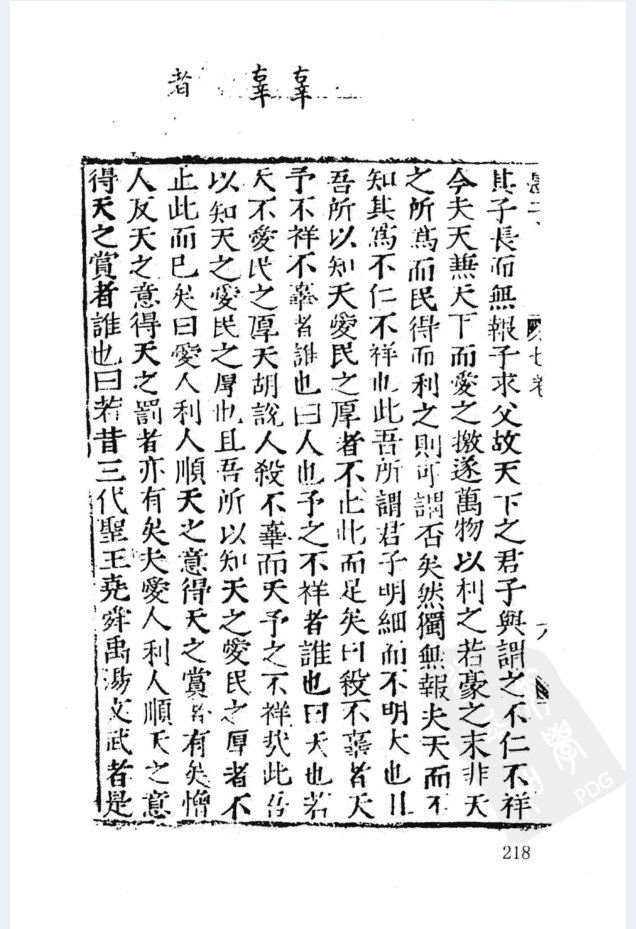 辜
辜
者
七卷
其子長而無報子求父故天下之君子與謂之不仁不祥
今夫天兼天下而愛之撽遂萬物以利之若豪之末非天
之所爲而民得而利之則可謂否矣然獨無報夫天而不
知其爲不仁不祥也此吾所謂君子明細而不明大也且
吾所以知天愛民之厚者不止此而足矣曰殺不辜者天
予不祥不辜者誰也曰人也予之不祥者誰也曰天也若
天不愛民之厚天胡說人殺不辜而天予之不祥哉此吾
以知天之愛民之厚也且吾所以知天之愛民之厚者不
止此而已矣曰愛人利人順天之意得天之賞者有矣憎
人反天之意得天之罰者亦有矣夫愛人利人順天之意
得天之賞者誰也曰若昔三代聖王堯舜禹湯文武者是
PDG
218